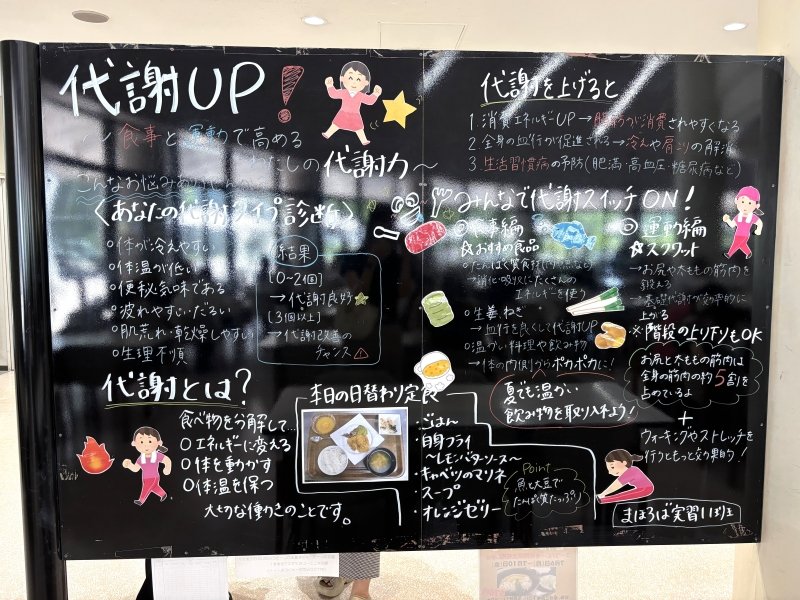 代謝UP!
食事と運動で高める
わたしの代謝力～
こんなお悩みありませんか
〈あなたの代謝タイプ診断〉
○体が冷えやすい
○体温が低い
○便秘気味である
○疲れやすい・だるい
○肌荒れ・乾燥しやすい
○生理不順
結果
[0~2個]
→代謝良好
[3個以上]
→代謝改善の
チャンス
代謝とは?
食べ物を分解して…
○エネルギーに変える
○体を動かす
○体温を保つ
大切な働きのことです。
本日の日替わり定食
・ごはん
・白身フライ
～レモンバターソース～
・キャベツのマリネ
・スープ
・オレンジゼリー
Point
魚と大豆で
たんぱく質たっぷり
代謝を上げると
1. 消費エネルギーUP→脂肪が消費されやすくなる
2. 全身の血行が促進される→冷えや肩こりの解消
3. 生活習慣病の予防(肥満・高血圧・糖尿病など)
みんなで代謝スイッチON!
◎食事編
★おすすめ食品
○たんぱく質食材
→消化吸収にたくさんの
エネルギーを使う
○生姜・ねぎ
→血行を良くして代謝UP
○温かい料理や飲み物
→体の内側からポカポカに!
夏でも温かい
飲み物を取り入れよう!
◎運動編
★スクワット
→お尻や太ももの筋肉を
鍛える
→基礎代謝が効率的に
上がる
※階段の上り下りもOK
お尻と太ももの筋肉は
全身の筋肉の約5割を
占めているよ
+
ウォーキングやストレッチを
行うともっと効果的!
まほろば実習11班